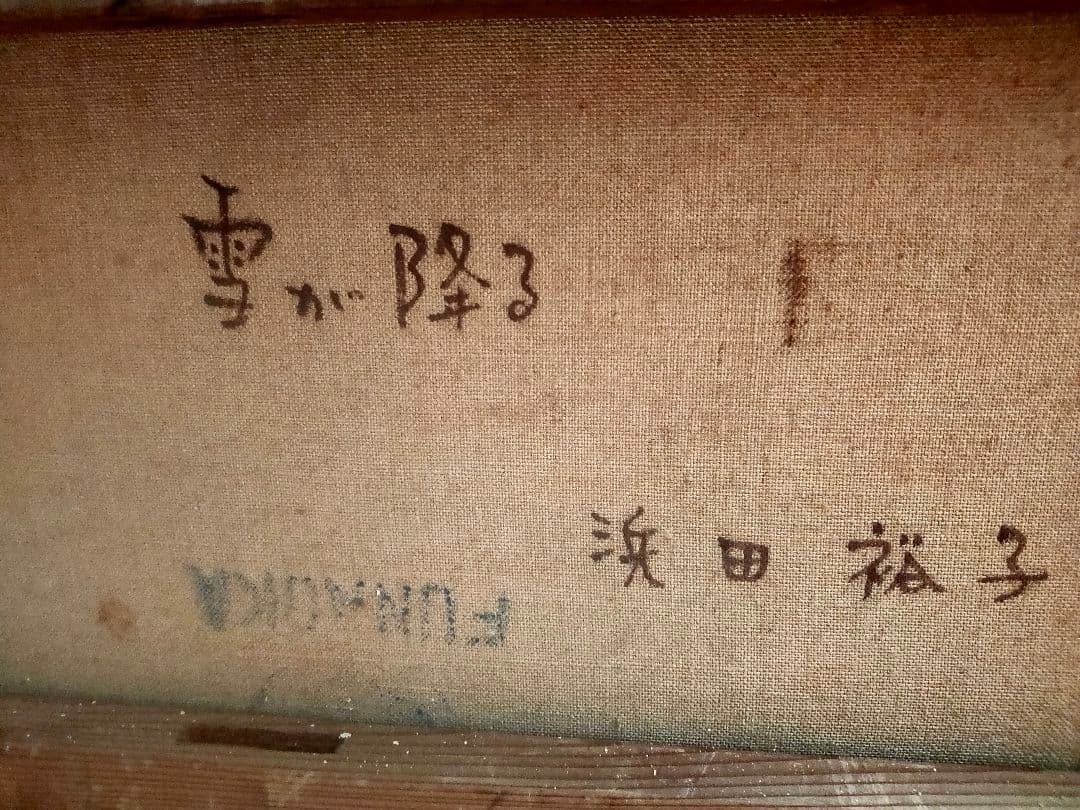 雪が降る
浜田 裕子
FUNAOKA